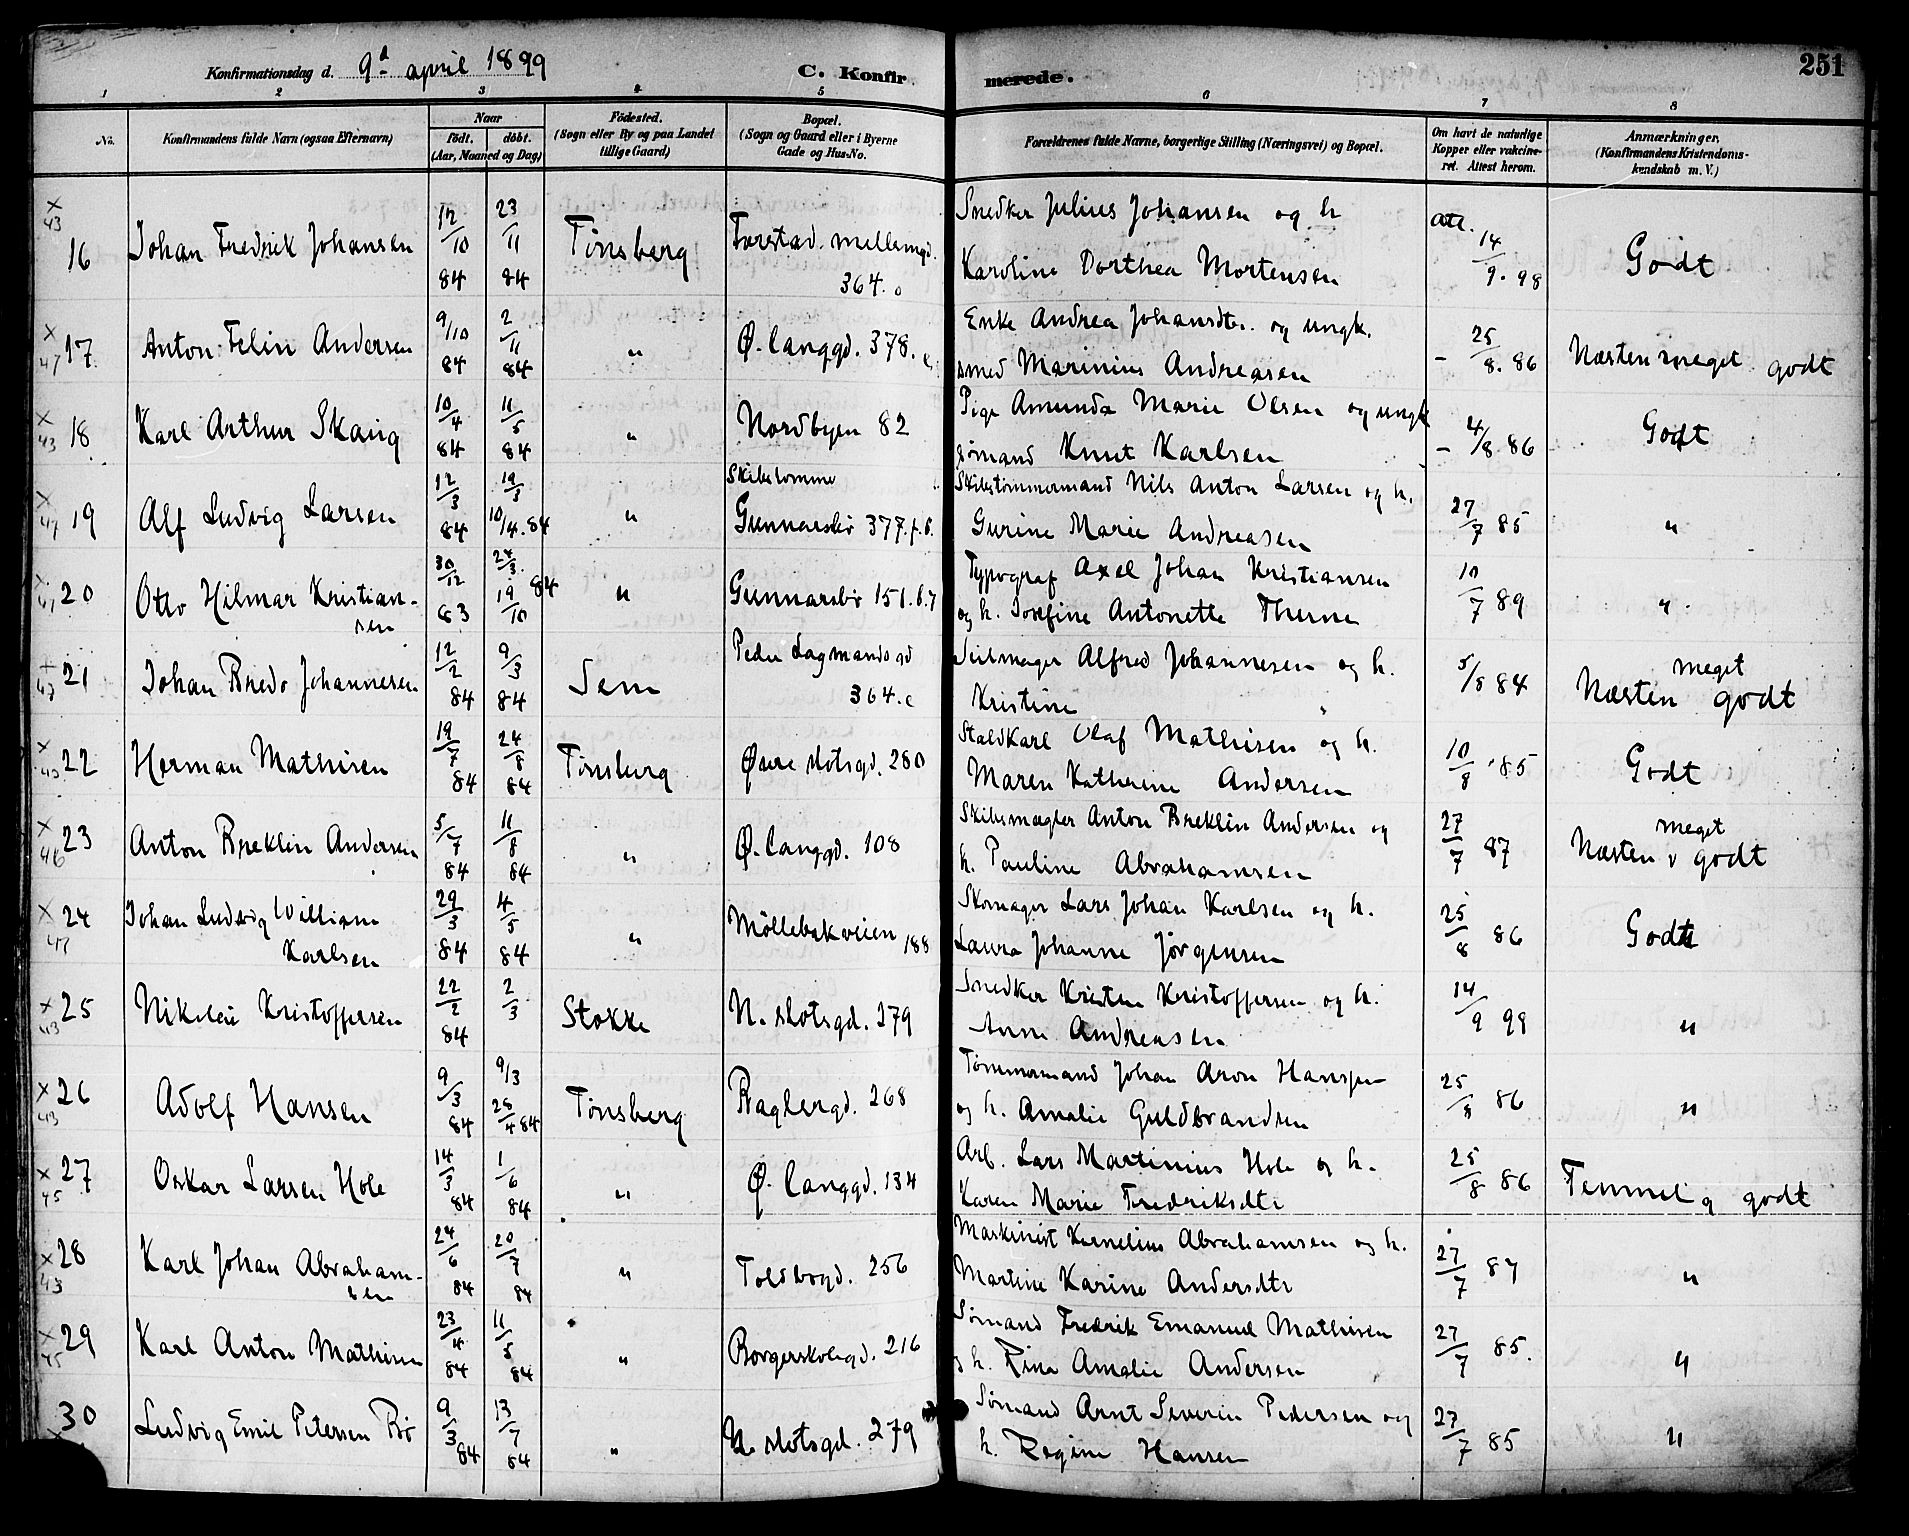 Konfirmationsdag d. 9d april 1899 C. Konfirmerede. 251
1 2 3 4 5 6 7 8
No. Konfirmandens fulde Navn (ogsaa Efternavn) Naar født. døbt. (Aar, Maaned og Dag) Fødested. (Sogn eller By og paa Landet tillige Gaard) Bopæl. (Sogn og Gaard eller i Byerne Gade og Hus-No. Forældrenes fulde Navne, borgerlige Stilling (Næringsvei) og Bopæl. Om havt de naturlige Kopper eller vakcineret. Attest herom. Anmærkninger, (Konfirmandens Kristendomskundskab m. V.)
x 43 16 Johan Fredrik Johansen 12/10 84 23/11 84 Tønsberg Farstad. mellemgd. 364. Snedker Julius Johansen og h Karoline Dorthea Mortensen att. 14/9. 98 Godt
x 47 17. Anton Felin Andersen 9/10 84 2/11 84 " Ø. langgd. 378. Enke Andrea Johansdtr. og ungk. smed Marinius Andreasen - 25/8. 86 Næsten meget godt
x 43 18 Karl Arthur Skaug 10/4 84 11/5 84 " Nordbyen 82 Pige Amunda Marie Olsen og ungk sømand Knut Karlsen - 4/8 86 Godt
x 47 19 Alf Ludvig Larsen 12/3 84 19/3 10/4. 84 " Gunnarsbø 377. f. 6. Skibstømmermand Nils Anton Larsen og h. Gurine Marie Andreasen 27/7 85 "
x 20 Otto Hilmar Kristiansen 30/12 83 24/3. 84 19/10 " Gunnarsbø 151. 6. 7 Typograf Axel Johan Kristiansen og h. Josefine Antonette Therne 10/7 89 "
21 Johan Bredo Johannesen 12/2 84 9/3 84 Sem Peder Lagmands gd 364. c Seilmager Alfred Johannesen og h. Kristine " 5/8 84 Næsten meget godt
x 43 22 Herman Mathisen 19/7 84 24/8 84 Tønsberg Øvre slotsgd. 280 Staldkarl Olaf Mathisen og h. Maren Kathrine Andersen 10/8 85 Godt
x 46 23 Anton Breklin Andersen 5/7 84 11/8 84 " Ø. langgd. 108 Skibsmægler Anton Breklin Andersen og h. Pauline Abrahamsen 27/7 87 Næsten meget godt
x 47 24 Johan Ludvig William Karlsen 29/3 84 4/5 84 " Møllebakveien 188 Skomager Lars Johan Karlsen og h. Laura Johanne Jørgensen 25/8 86 Godt
x 43 25 Nikolai Kristoffersen 22/2 84 2/3 Stokke N. slotsgd. 279 Snedker Kristen Kristoffersen og h. Anne Andreasen 14/9 98 "
x 43 26 Adolf Hansen 9/3 84 9/3 28/4 84 Tønsberg Baglergd. 268 Tømmermand Johan Aron Hansen og h. Amalie Guldbrandsen 25/8 86 "
x 45 27 Oskar Larsen Hole 14/3 84 1/6 84 " Ø. langgd. 134 Arb. Lars Martinius Hole og h. Karen Marie Fredriksdtr 25/8 86 Temmelig godt
x 43 28 Karl Johan Abrahamsen 24/6 84 20/7 84 " Toldbogd. 256 Maskinist Kornelius Abrahamsen og h. Martine Karine Andersdtr 27/7 87 "
x 45 29 Karl Anton Mathisen 23/4 84 11/5 84 " Borgerskolegd. 216 Sømand Fredrik Emanuel Mathisen og h. Rina Amalie Andersen 27/7 85. "
30 Ludvig Emil Petersen Bø 9/3 84 13/7 84 " N. slotsgd. 279 Sømand Arnt Severin Pedersen og h. Regine Hansen 27/7 85 "